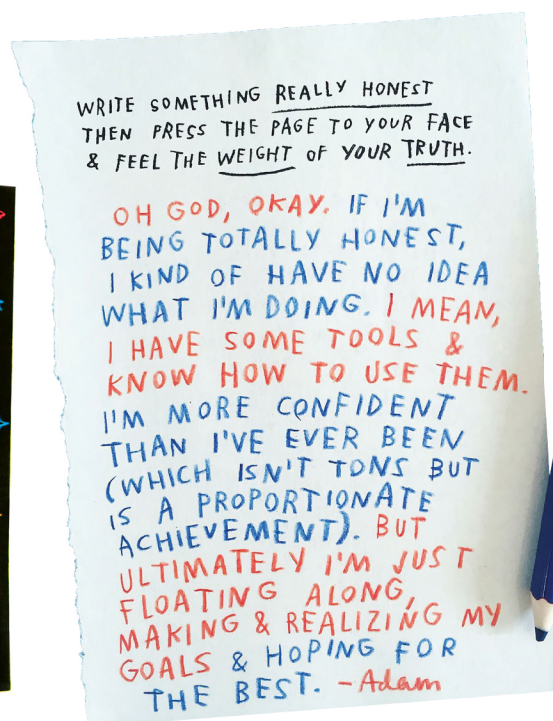 WRITE SOMETHING REALLY HONEST
THEN PRESS THE PAGE TO YOUR FACE
& FEEL THE WEIGHT OF YOUR TRUTH.
OH GOD, OKAY. IF I'M
BEING TOTALLY HONEST,
I KIND OF HAVE NO IDEA
WHAT I'M DOING. I MEAN,
I HAVE SOME TOOLS &
KNOW HOW TO USE THEM.
I'M MORE CONFIDENT
THAN I'VE EVER BEEN
(WHICH ISN'T TONS BUT
IS A PROPORTIONATE
ACHIEVEMENT). BUT
ULTIMATELY I'M JUST
FLOATING ALONG,
MAKING & REALIZING MY
GOALS & HOPING FOR
THE BEST. -Adam